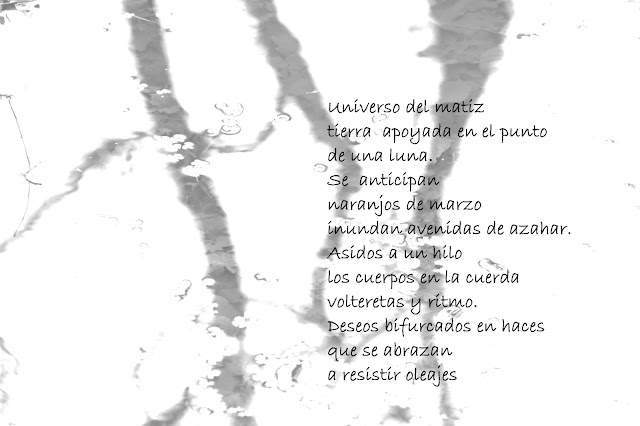 Universo del matiz
tierra apoyada en el punto
de una luna.
Se anticipan
naranjos de marzo
inundan avenidas de azahar.
Asidos a un hilo
los cuerpos en la cuerda
volteretas y ritmo.
Deseos bifurcados en haces
que se abrazan
a resistir oleajes